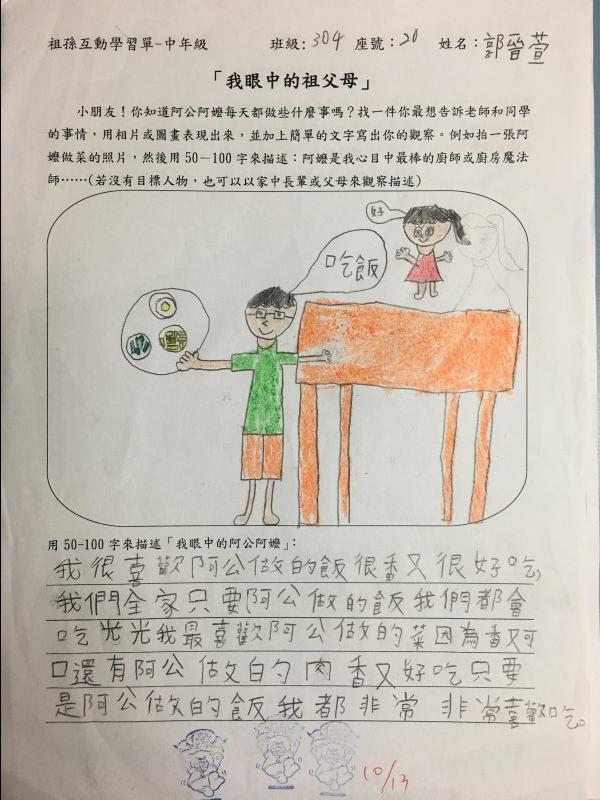 祖孫互動學習單-中年級 班級:304 座號:20 姓名:郭晉萱
「我眼中的祖父母」
小朋友!你知道阿公阿嬤每天都做些什麼事嗎?找一件你最想告訴老師和同學
的事情,用相片或圖畫表現出來,並加上簡單的文字寫出你的觀察。例如拍一張阿
嬤做菜的照片,然後用50-100字來描述:阿嬤是我心目中最棒的廚師或廚房魔法
師……(若沒有目標人物,也可以以家中長輩或父母來觀察描述)
好
吃飯
用50-100字來描述「我眼中的阿公阿嬤」:
我很喜歡阿公做的飯很香又很好吃,
我們全家只要阿公做的飯我們都會
吃光光我最喜歡阿公做的菜因為香又可
口還有阿公做的肉香又好吃只要
是阿公做的飯我都非常非常喜歡吃。
10/13